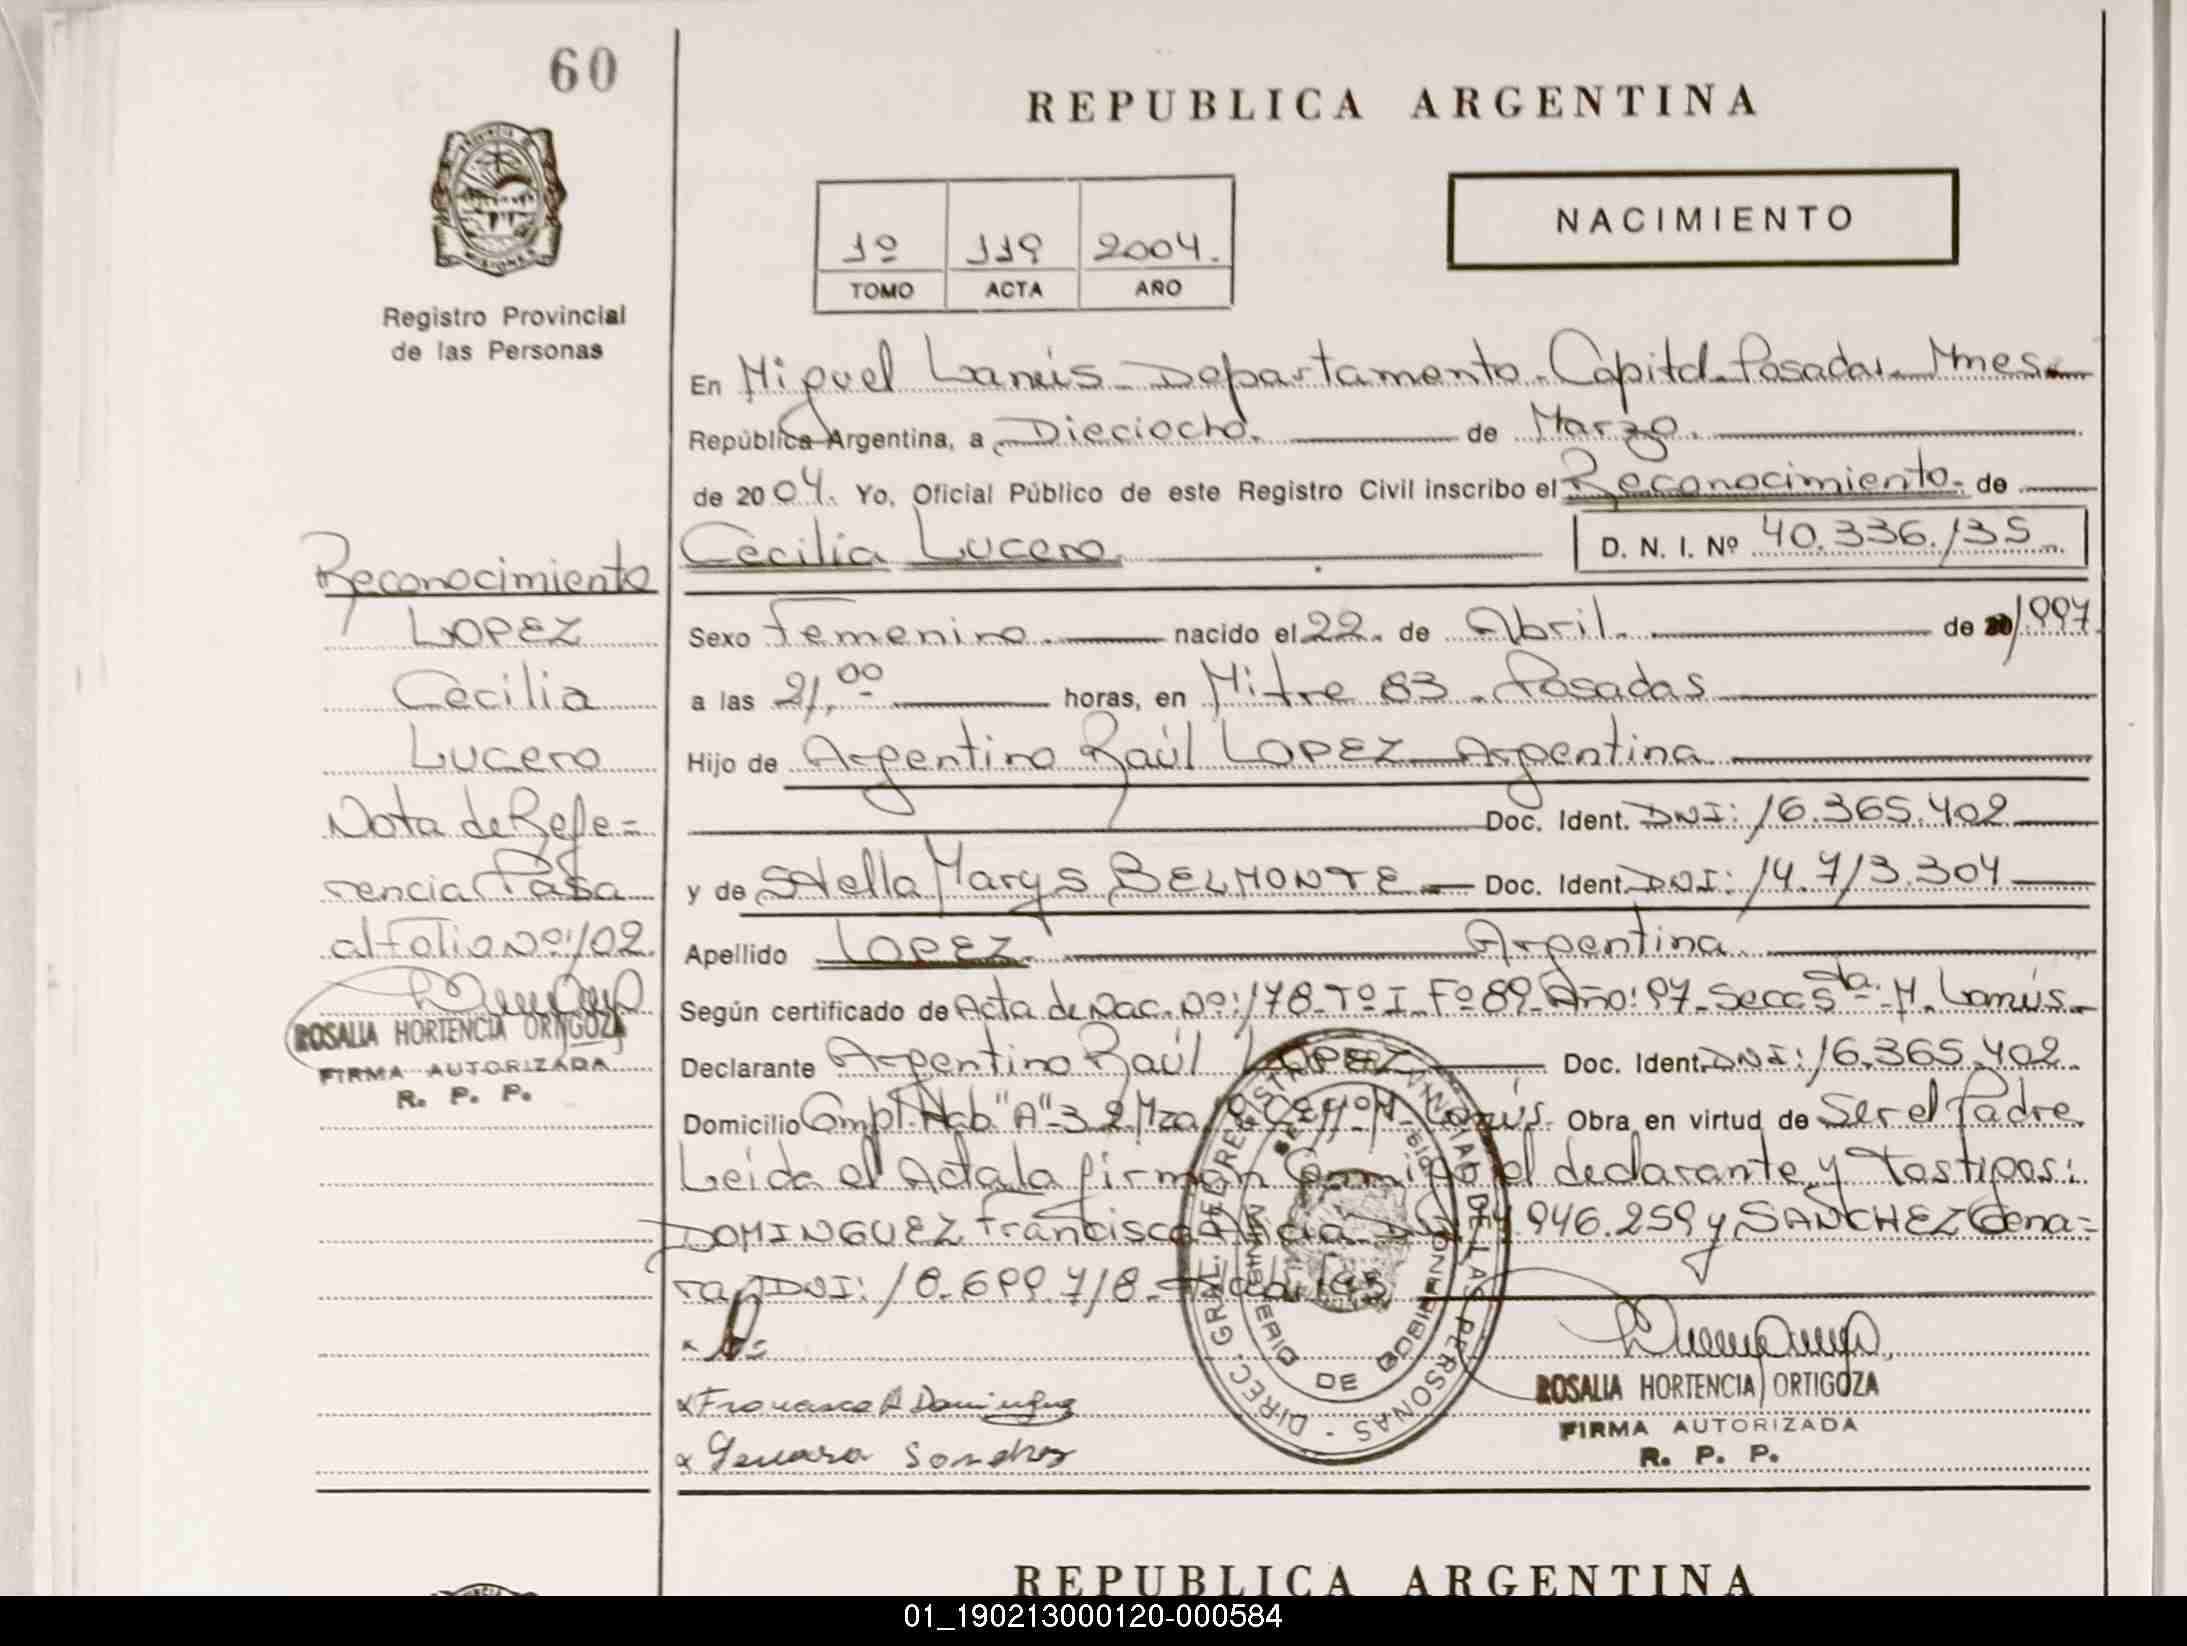 60
REPUBLICA ARGENTINA
NACIMIENTO
1º 119 2004.
TOMO ACTA AÑO
Registro Provincial
de las Personas
En Miguel Lanús - Departamento - Capital - Posadas - Mnes -
República Argentina, a Dieciocho. de Marzo.
de 2004. Yo, Oficial Público de este Registro Civil inscribo el Reconocimiento - de
Cecilia Lucero D. N. I. Nº 40.336.135
Sexo Femenino. nacido el 22. de Abril. de 1997.
a las 21,00 horas, en Mitre 83 - Posadas
Hijo de Argentino Raúl LOPEZ - Argentina
Doc. Ident. DNI: 16.365.402
y de Stella Marys BELMONTE - Doc. Ident. DNI: 14.713.304
Apellido LOPEZ. Argentina
Según certificado de Acta de Nac. Nº: 178 - Tº I - Fº 89 - Año: 97 - Secc 5ta - M. Lanús -
Declarante Argentino Raúl LOPEZ Doc. Ident. DNI: 16.365.402.
Domicilio Compl. Hab "A" 32 Mza M. Lanús - Obra en virtud de Ser el Padre
Leida el Acta la firman Conmigo el declarante y Testigos:
DOMINGUEZ Francisca Alicia 946.259 y SANCHEZ Gena=
ra DNI: 18.699.718 - Habiles
Francisca A Dominguez
Genara Sanchez
ROSALIA HORTENCIA ORTIGOZA
FIRMA AUTORIZADA
R. P. P.
Reconocimiento
LOPEZ
Cecilia
Lucero
Nota de Refe=
rencia Pasa
al Folio Nº: 102.
ROSALIA HORTENCIA ORTIGOZA
FIRMA AUTORIZADA
R. P. P.
DIREC. GRAL. DEL REGISTRO PROVINCIAL DE LAS PERSONAS -
MINISTERIO DE GOBIERNO
REPUBLICA ARGENTINA
01_190213000120-000584